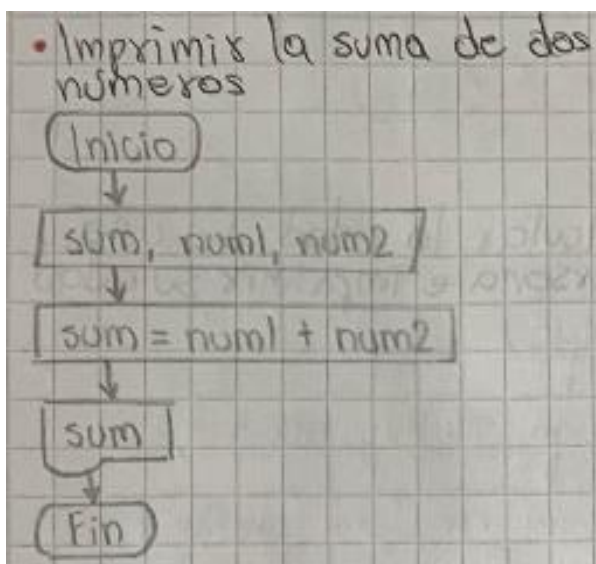 • Imprimir la suma de dos
números
Inicio
sum, num1, num2
sum = num1 + num2
sum
Fin